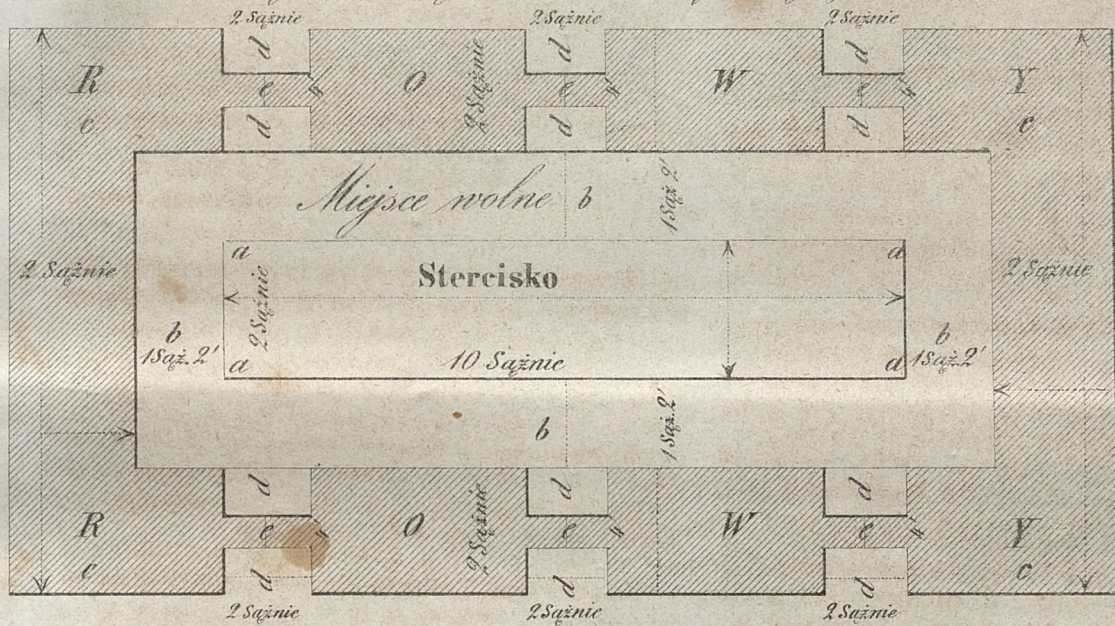 2 Sążnie 2 Sążnie 2 Sążnie
d d d
R O 2 Sążnie W Y
e 4' e 4' e 4'
c c
d d d
Miejsce wolne b 1 Sąż 2'
a a
Stercisko
2 Sążnie 2 Sążnie 2 Sążnie
b b
1 Sąż. 2' 1 Sąż. 2'
a 10 Sążnie a
b 1 Sąż. 2'
d d d
R O 2 Sążnie W Y
e e 4' e 4'
c c
d d d
2 Sążnie 2 Sążnie 2 Sążnie